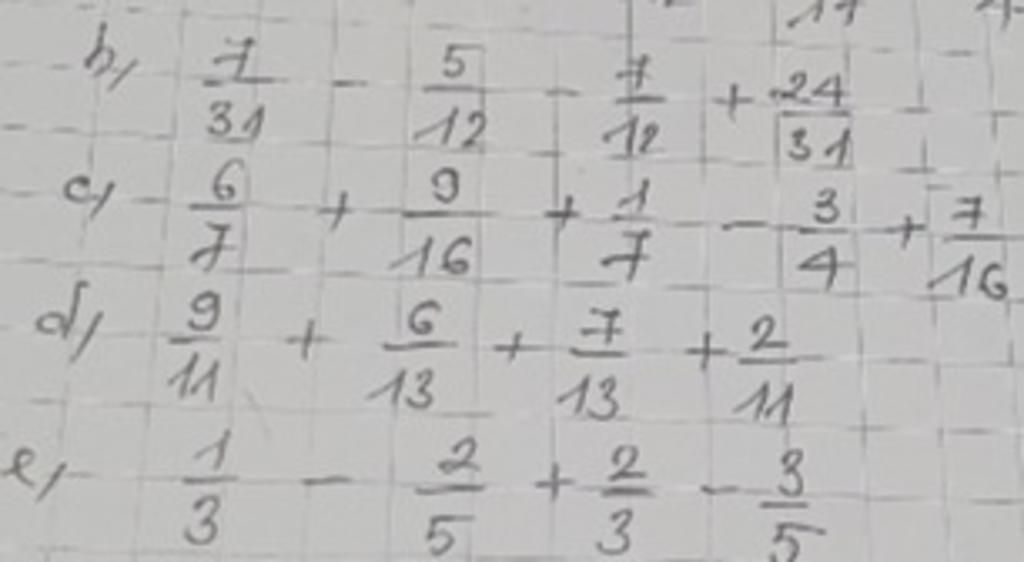 b, 7/31 - 5/12 - 7/12 + 24/31
c, 6/7 + 9/16 + 1/7 - 3/4 + 7/16
d, 9/11 + 6/13 + 7/13 + 2/11
e, 1/3 - 2/5 + 2/3 - 3/5